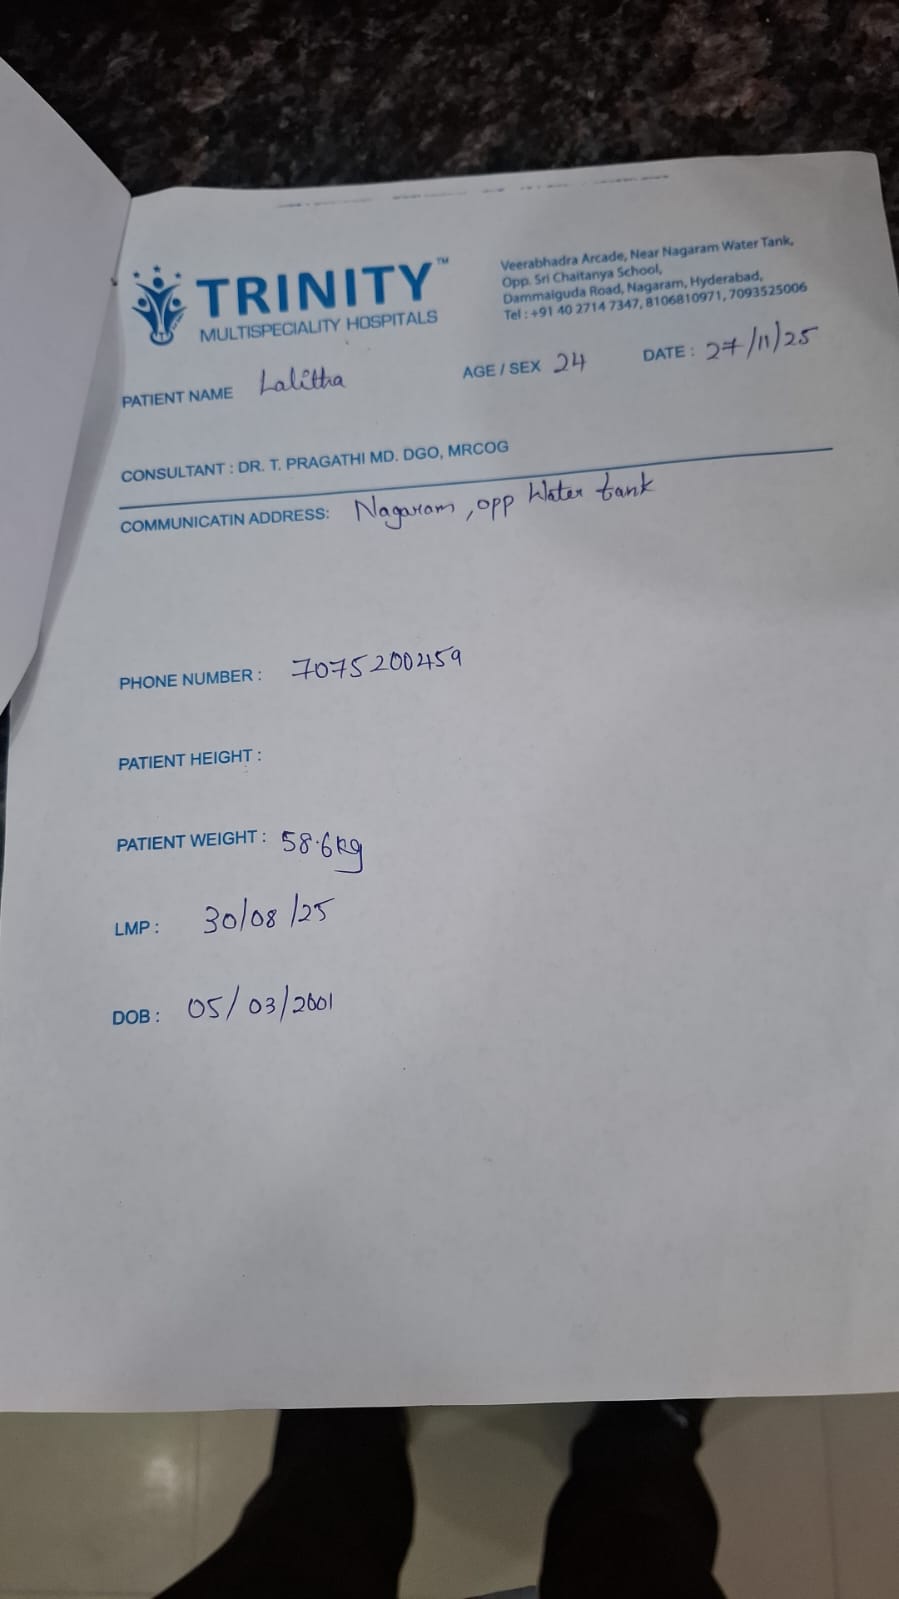 TRINITY™
MULTISPECIALITY HOSPITALS
Veerabhadra Arcade, Near Nagaram Water Tank,
Opp. Sri Chaitanya School,
Dammaiguda Road, Nagaram, Hyderabad,
Tel : +91 40 2714 7347, 8106810971, 7093525006
PATIENT NAME Lalitha AGE / SEX 24 DATE : 27/11/25
CONSULTANT : DR. T. PRAGATHI MD. DGO, MRCOG
COMMUNICATIN ADDRESS: Nagaram, opp Water tank
PHONE NUMBER : 7075200459
PATIENT HEIGHT :
PATIENT WEIGHT : 58.6kg
LMP : 30/08/25
DOB : 05/03/2001